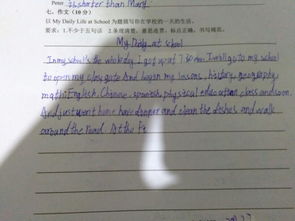 Peter is shorter than Mary.
七、作文（10分）
以 My Daily Life at School 为题描写你在学校的一天的生活。
要求：1.不少于五句话 2.条理清楚，意思连贯，标点正确，书写规范。
My Daily at school
In my school's the whole day. I got up at I will go to my school
to open my class And began my lessons, history, geography
math English, Chinese, spanish, physical education class and soon.
And just went home have danner and clean the dishes and walk
around the road. At the